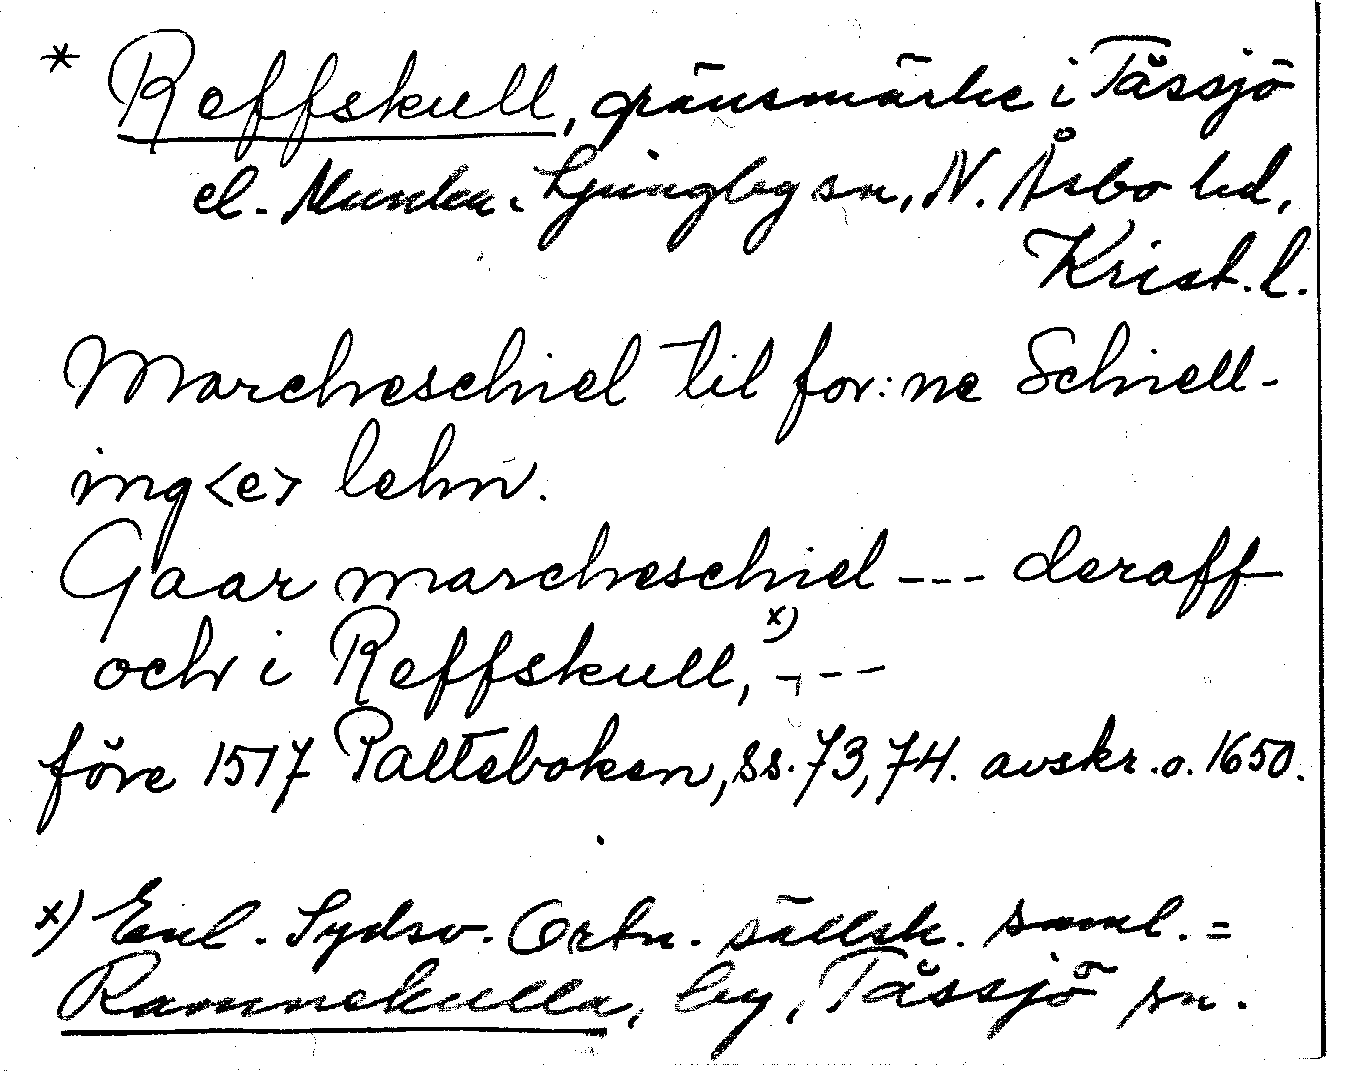 * Reffskull, gränsmärke i Tåssjö
el. Munka-Ljungby sn, N. Åsbo hd,
Krist. l.
Marcheschiel til for:ne Schiell-
ing<e> lehn.
Gaar marcheschiel --- deraff
och i Reffskull,x) ---
före 1517 Palteboken, ss. 73, 74. avskr. o. 1650.
x) Enl. Sydsv. Ortn. sällsk. saml. =
Ramnekulla, by, Tåssjö sn.